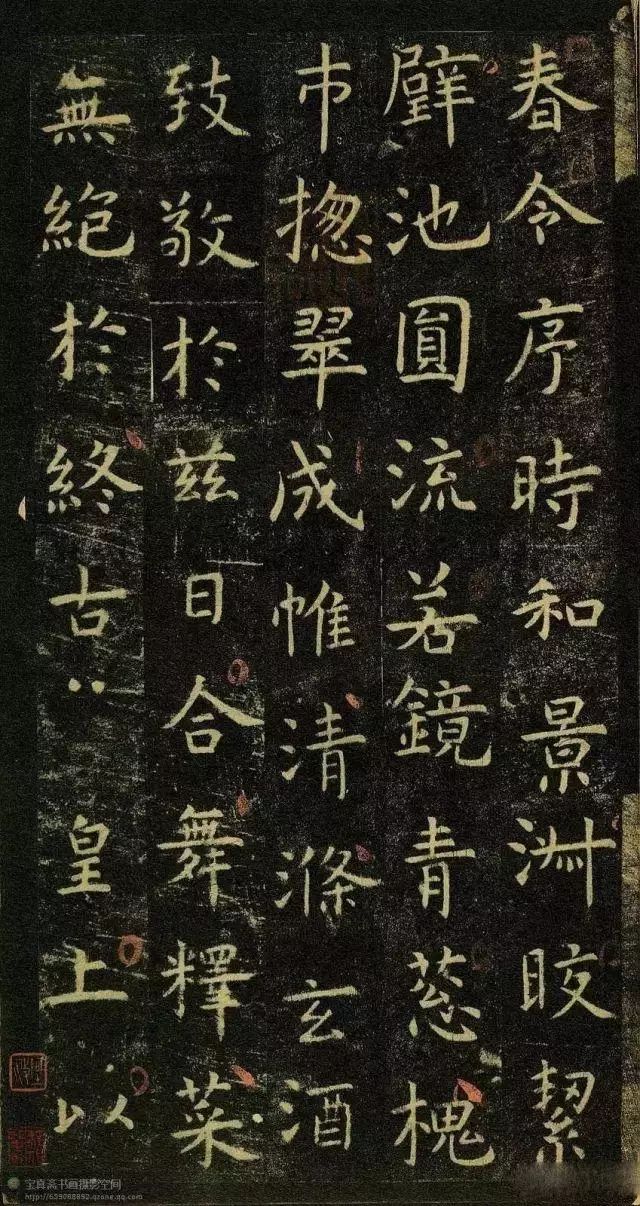 春令序時和景淑晈絜
璧池圓流若鏡青葱槐
市揔翠成帷清滌玄酒
致敬於兹日合舞釋菜
無絶於終古皇上以
宝真斋书画摄影空间
http://659088892.qzone.qq.com